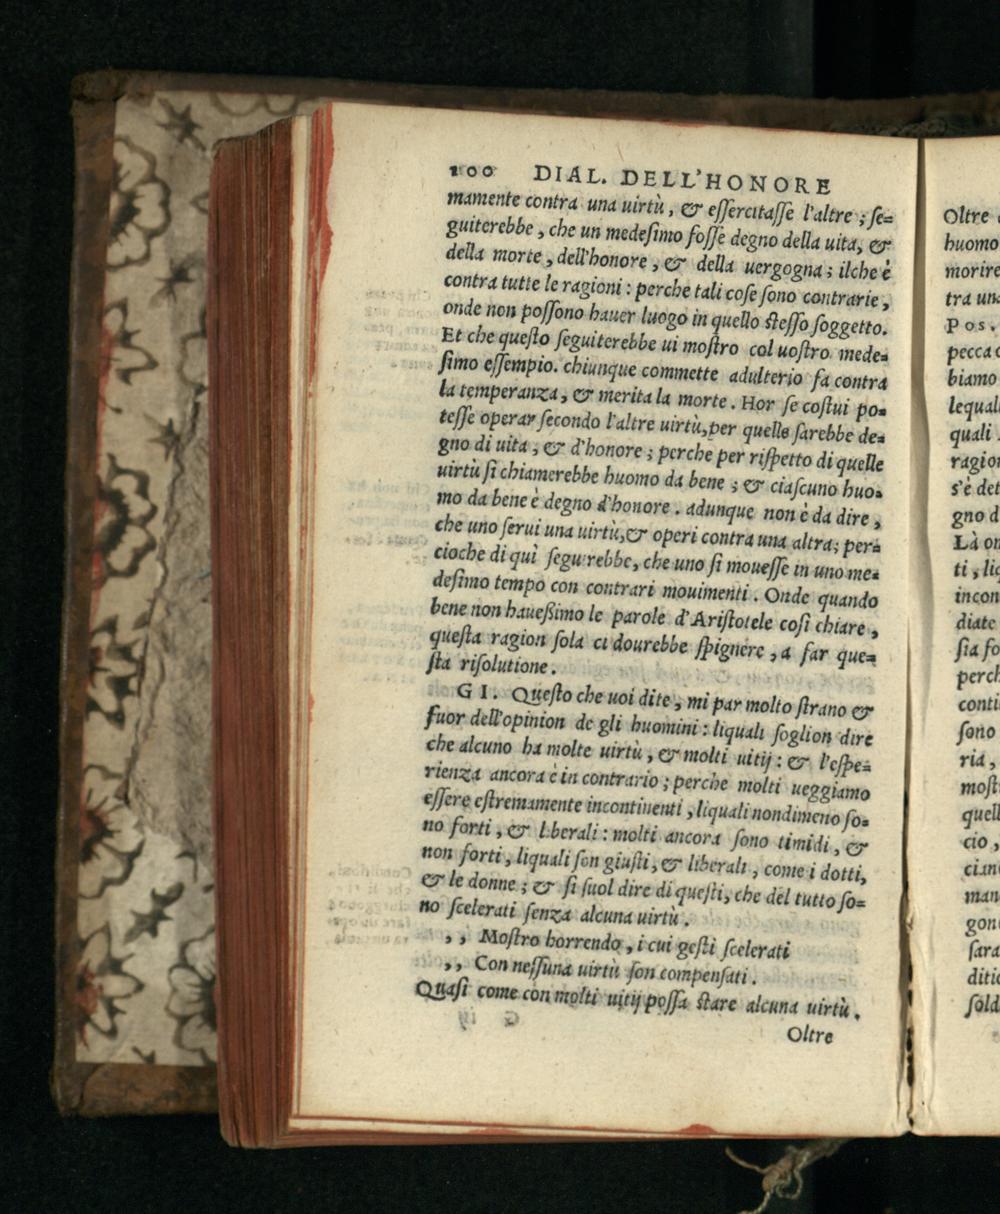 100 DIAL. DELL'HONORE
mamente contra una uirtù, & eſſercitaſſe l'altre; ſe=
guiterebbe, che un medeſimo foſſe degno della uita, &
della morte, dell'honore, & della uergogna; ilche è
contra tutte le ragioni: perche tali coſe ſono contrarie,
onde non poſſono hauer luogo in quello steſſo ſoggetto.
Et che queſto ſeguiterebbe ui moſtro col uoſtro mede=
ſimo eſſempio. chiunque commette adulterio fa contra
la temperanza, & merita la morte. Hor ſe coſtui po=
teſſe operar ſecondo l'altre uirtù, per quelle ſarebbe de=
gno di uita, & d'honore; perche per riſpetto di quelle
uirtù ſi chiamerebbe huomo da bene; & ciaſcuno huo=
mo da bene è degno d'honore. adunque non è da dire,
che uno ſerui una uirtù, & operi contra una altra; per=
cioche di quì ſegu rebbe, che uno ſi moueſſe in uno me=
deſimo tempo con contrari mouimenti. Onde quando
bene non haueßimo le parole d'Ariſtotele coſi chiare,
queſta ragion ſola ci dourebbe ſpignere, a far que=
ſta riſolutione.
GI. Queſto che uoi dite, mi par molto ſtrano &
fuor dell'opinion de gli huomini: liquali ſoglion dire
che alcuno ha molte uirtù, & molti uitij: & l'eſpe=
rienza ancora è in contrario; perche molti ueggiamo
eſſere eſtremamente incontinenti, liquali nondimeno ſo=
no forti, & liberali: molti ancora ſono timidi, &
non forti, liquali ſon giuſti, & liberali, come i dotti,
& le donne; & ſi ſuol dire di queſti, che del tutto ſo=
no ſcelerati ſenza alcuna uirtù.
,, Moſtro horrendo, i cui geſti ſcelerati
,, Con neſſuna uirtù ſon compenſati.
Quaſi come con molti uitij poſſa stare alcuna uirtù.
Oltre
Oltre
huomo
morire
tra una
Pos.
pecca
biamo
lequal
quali
ragion
s'è det
gno d
Là on
ti, liq
incon
diate
ſia fo
perch
conti
ſono
ria,
moſt
quell
cio,
cian
man
gon
ſara
ditio
ſold